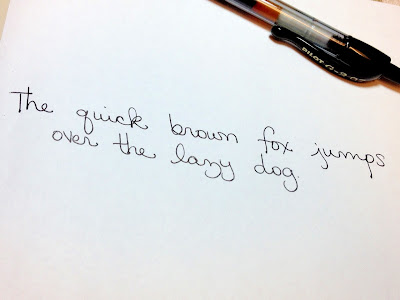 PILOT G-2 07
The quick brown fox jumps
over the lazy dog.